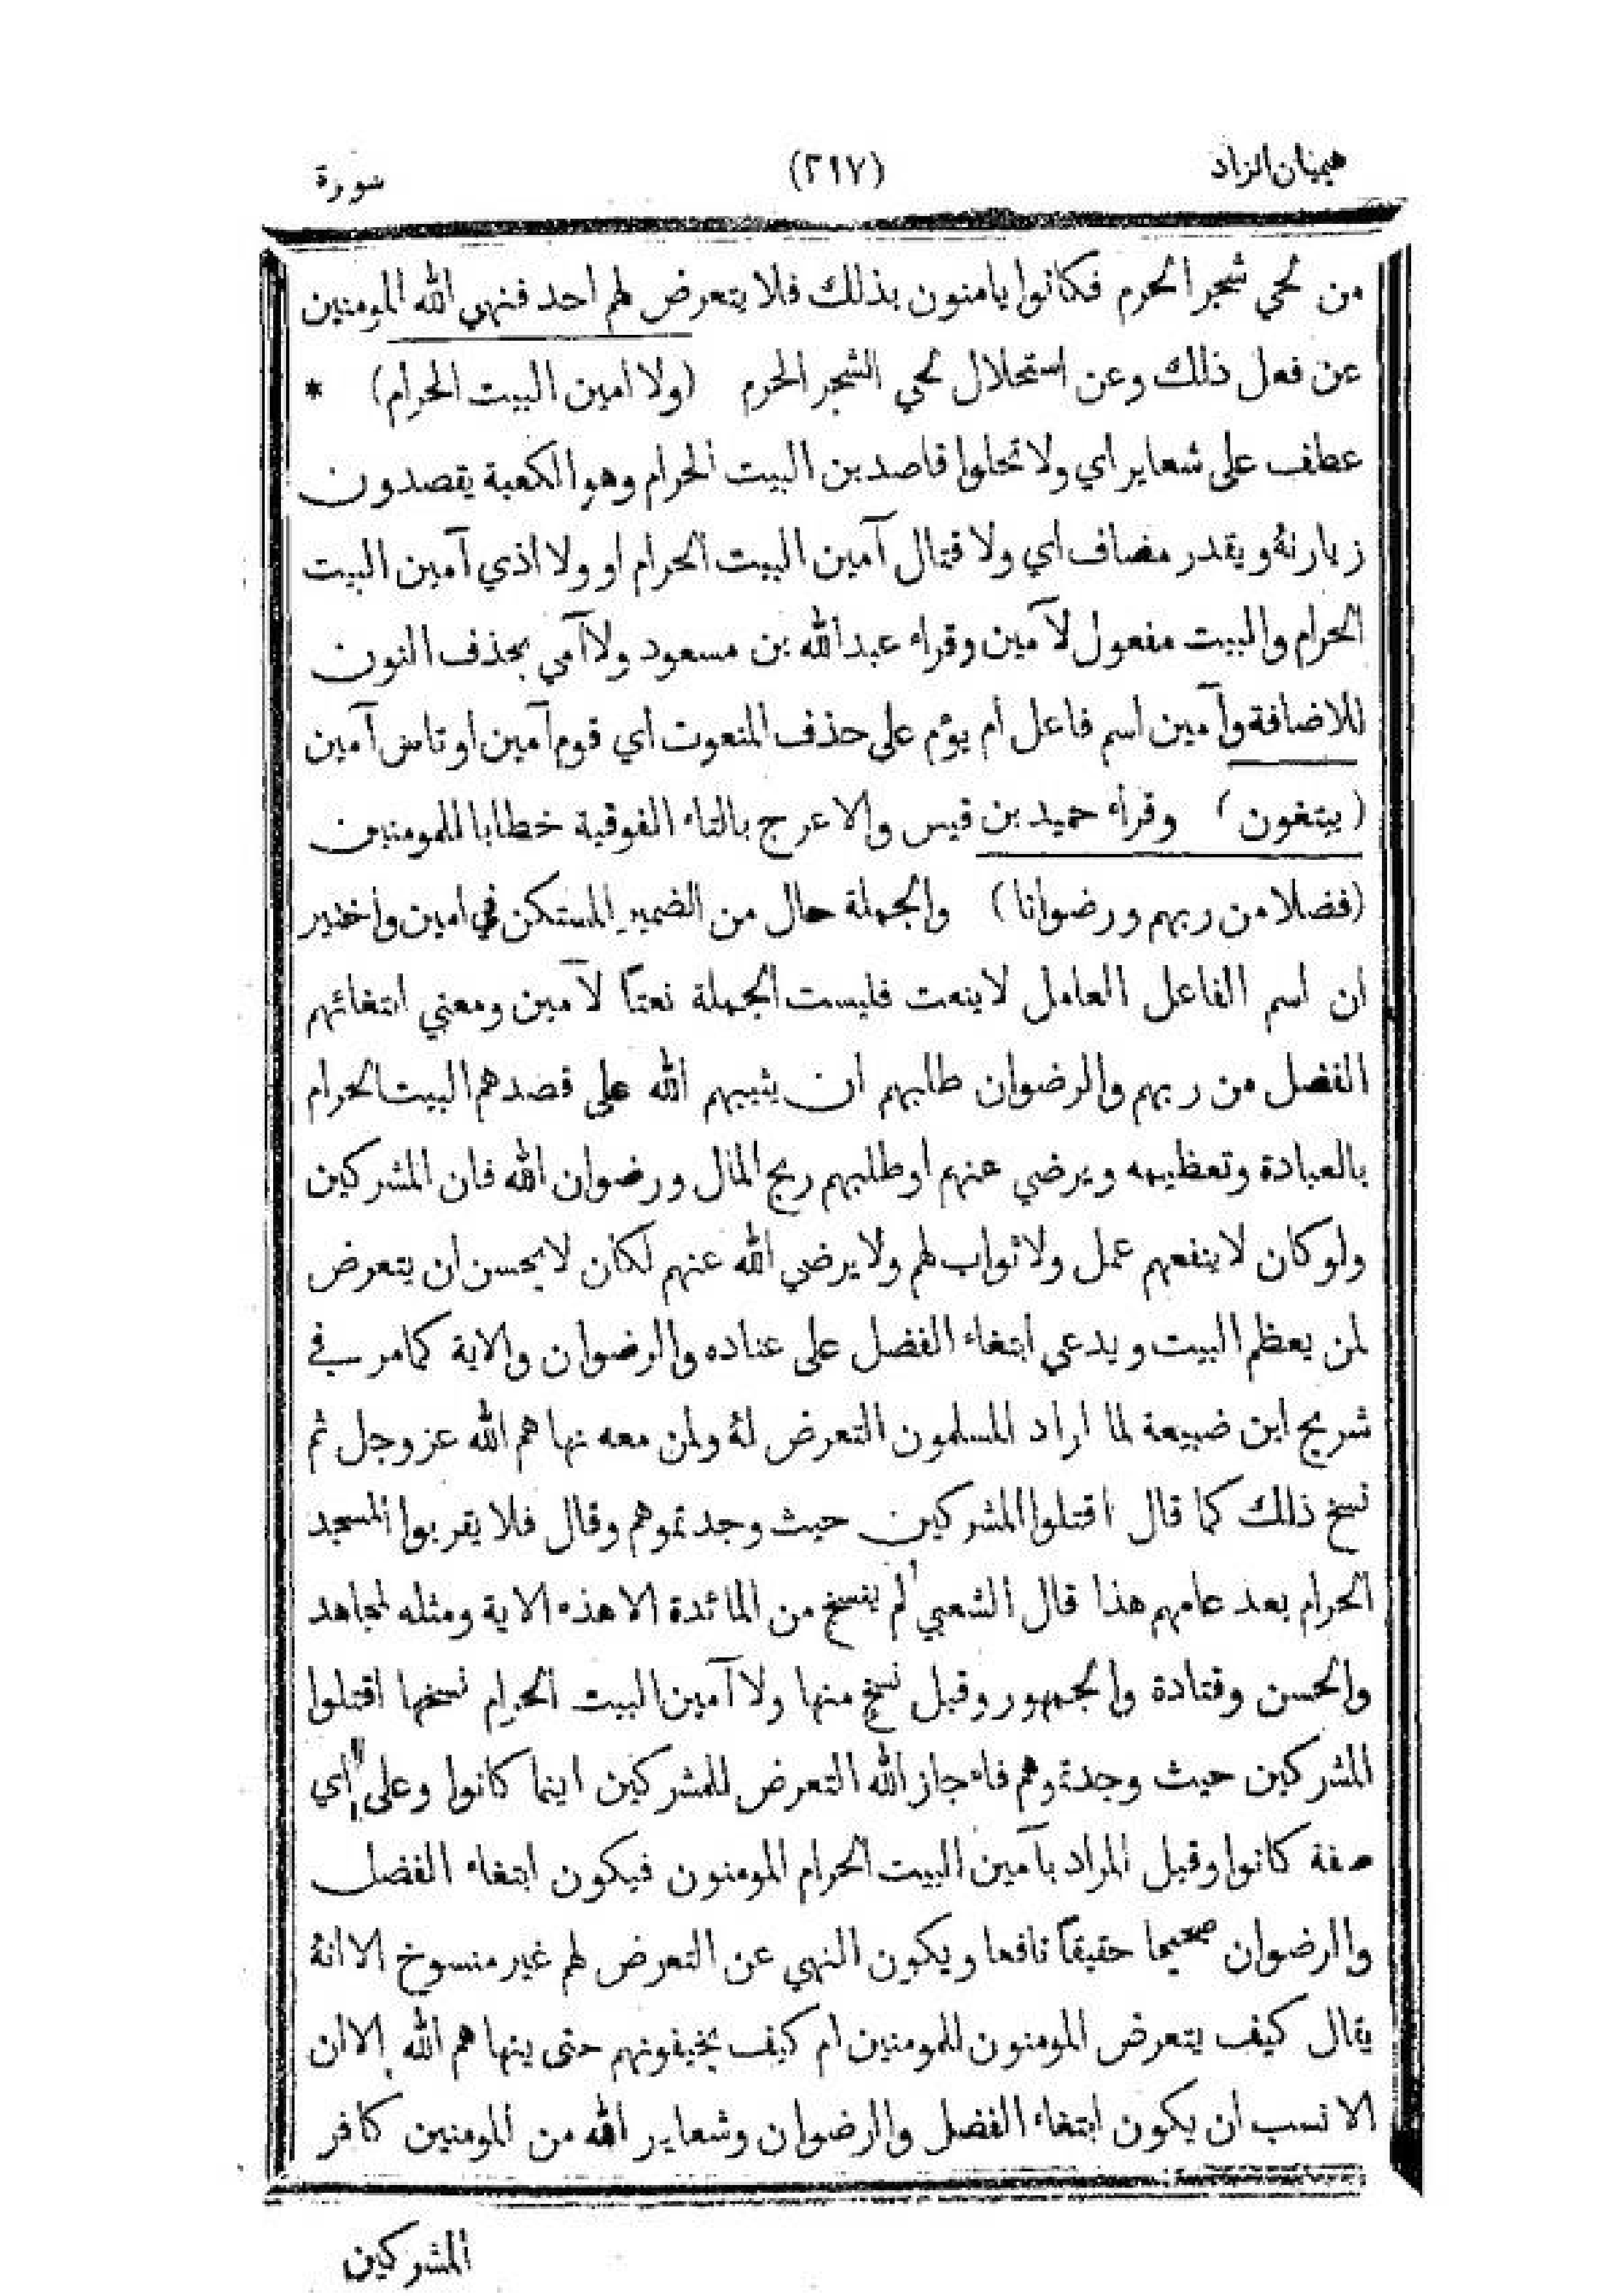 هميان الزاد (٢١٧) سورة
من لحي شجر الحرم فكانوا يامنون بذلك فلا يتعرض لهم احد فنهي الله المومنين
عن فعل ذلك وعن استحلال لحي الشجر الحرم (ولا امين البيت الحرام) *
عطف على شعاير اي ولا تحلوا قاصدين البيت الحرام وهو الكعبة يقصدون
زيارته ويقدر مضاف اي ولا قتال آمين البيت الحرام او ولا اذي آمين البيت
الحرام والبيت مفعول لآمين وقراء عبد الله بن مسعود ولا آمي بحذف النون
للاضافة وآمين اسم فاعل أم يؤم على حذف المنعوت اي قوم آمين او ناس آمين
(يبتغون) وقرأ حميد بن قيس والاعرج بالتاء الفوقية خطابا للمومنين
(فضلا من ربهم ورضوانا) والجملة حال من الضمير المستكن في امين واختير
ان اسم الفاعل العامل لا ينعت فليست الجملة نعتًا لآمين ومعني ابتغائهم
الفضل من ربهم والرضوان طلبهم ان يثيبهم الله على قصدهم البيت الحرام
بالعبادة وتعظيمه ويرضي عنهم او طلبهم ربح المال ورضوان الله فان المشركين
ولو كان لا ينفعهم عمل ولا ثواب لهم ولا يرضي الله عنهم لكان لا يحسن ان يتعرض
لمن يعظم البيت ويدعي ابتغاء الفضل على عناده والرضوان والاية كما مر في
شريح ابن ضبيعة لما اراد المسلمون التعرض له ولمن معه نهاهم الله عز وجل ثم
نسخ ذلك كما قال اقتلوا المشركين حيث وجدتموهم وقال فلا يقربوا المسجد
الحرام بعد عامهم هذا قال الشعبي لم ينسخ من المائدة الا هذه الاية ومثله لمجاهد
والحسن وقتادة والجمهور وقيل نسخ منها ولا آمين البيت الحرام نسخها اقتلوا
المشركين حيث وجدتموهم فاجاز الله التعرض للمشركين اينما كانوا وعلى اي
صفة كانوا وقيل المراد بآمين البيت الحرام المومنون فيكون ابتغاء الفضل
والرضوان صحيحا حقيقًا نافعا ويكون النهي عن التعرض لهم غير منسوخ الا انه
يقال كيف يتعرض المومنون للمومنين ام كيف يخيفونهم حتى ينهاهم الله الا ان
الانسب ان يكون ابتغاء الفضل والرضوان وشعاير الله من المومنين كافر
المشركين